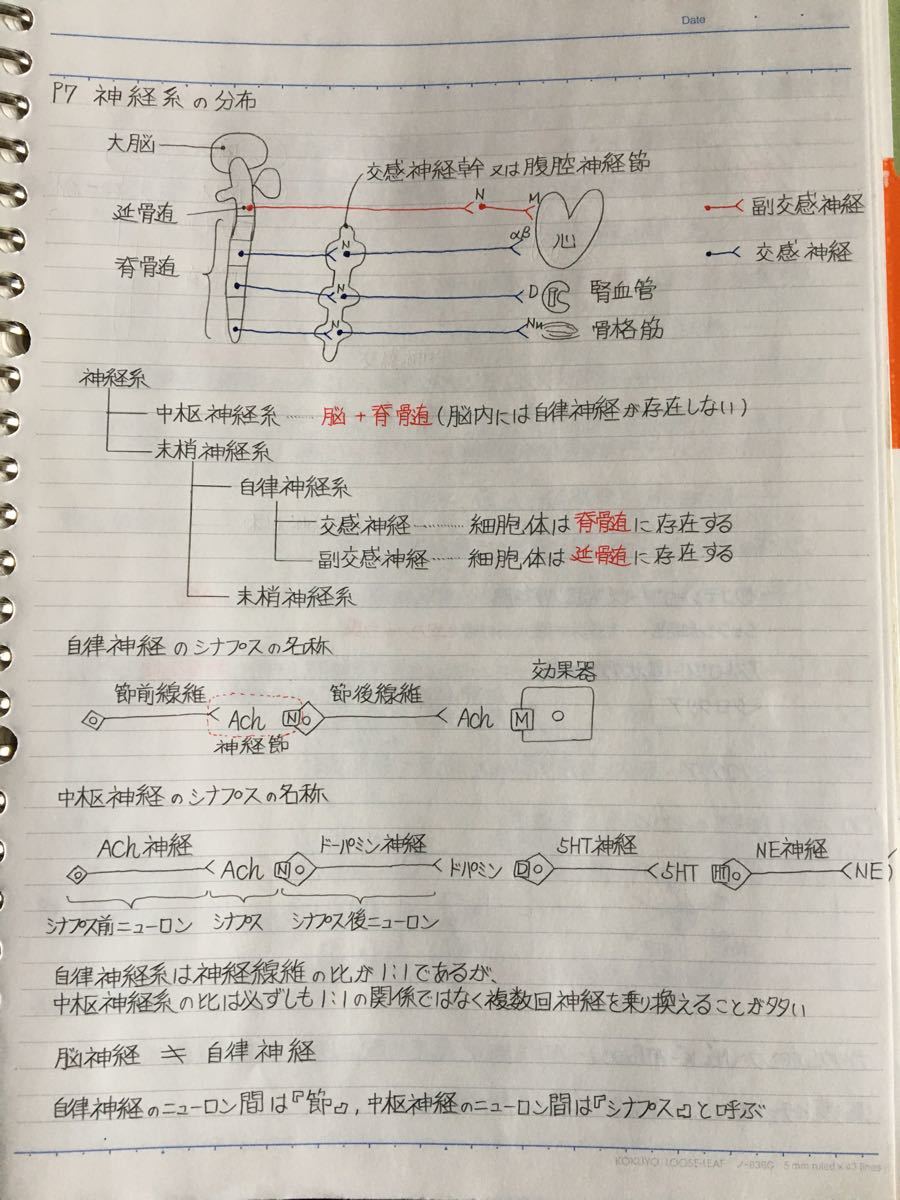 Date
P7 神経系の分布
大脳
交感神経幹又は腹腔神経節
延骨道 N M 心 副交感神経
脊骨道 N αβ 交感神経
N D 腎血管
N NM 骨格筋
神経系
中枢神経系……脳+脊骨道(脳内には自律神経が存在しない)
末梢神経系
自律神経系
交感神経……細胞体は脊骨道に存在する
副交感神経……細胞体は延骨道に存在する
末梢神経系
自律神経のシナプスの名称
効果器
節前線維 節後線維
Ach N Ach M
神経節
中枢神経のシナプスの名称
ACh神経 ドーパミン神経 5HT神経 NE神経
Ach N ドパミン D 5HT HT NE
シナプス前ニューロン シナプス シナプス後ニューロン
自律神経系は神経線維の比が1:1であるが、
中枢神経系の比は必ずしも1:1の関係ではなく複数回神経を乗り換えることが多い
脳神経 ≒ 自律神経
自律神経のニューロン間は『節』,中枢神経のニューロン間は『シナプス』と呼ぶ
KOKUYO LOOSE-LEAF ノ-836G 5 mm ruled × 43 lines